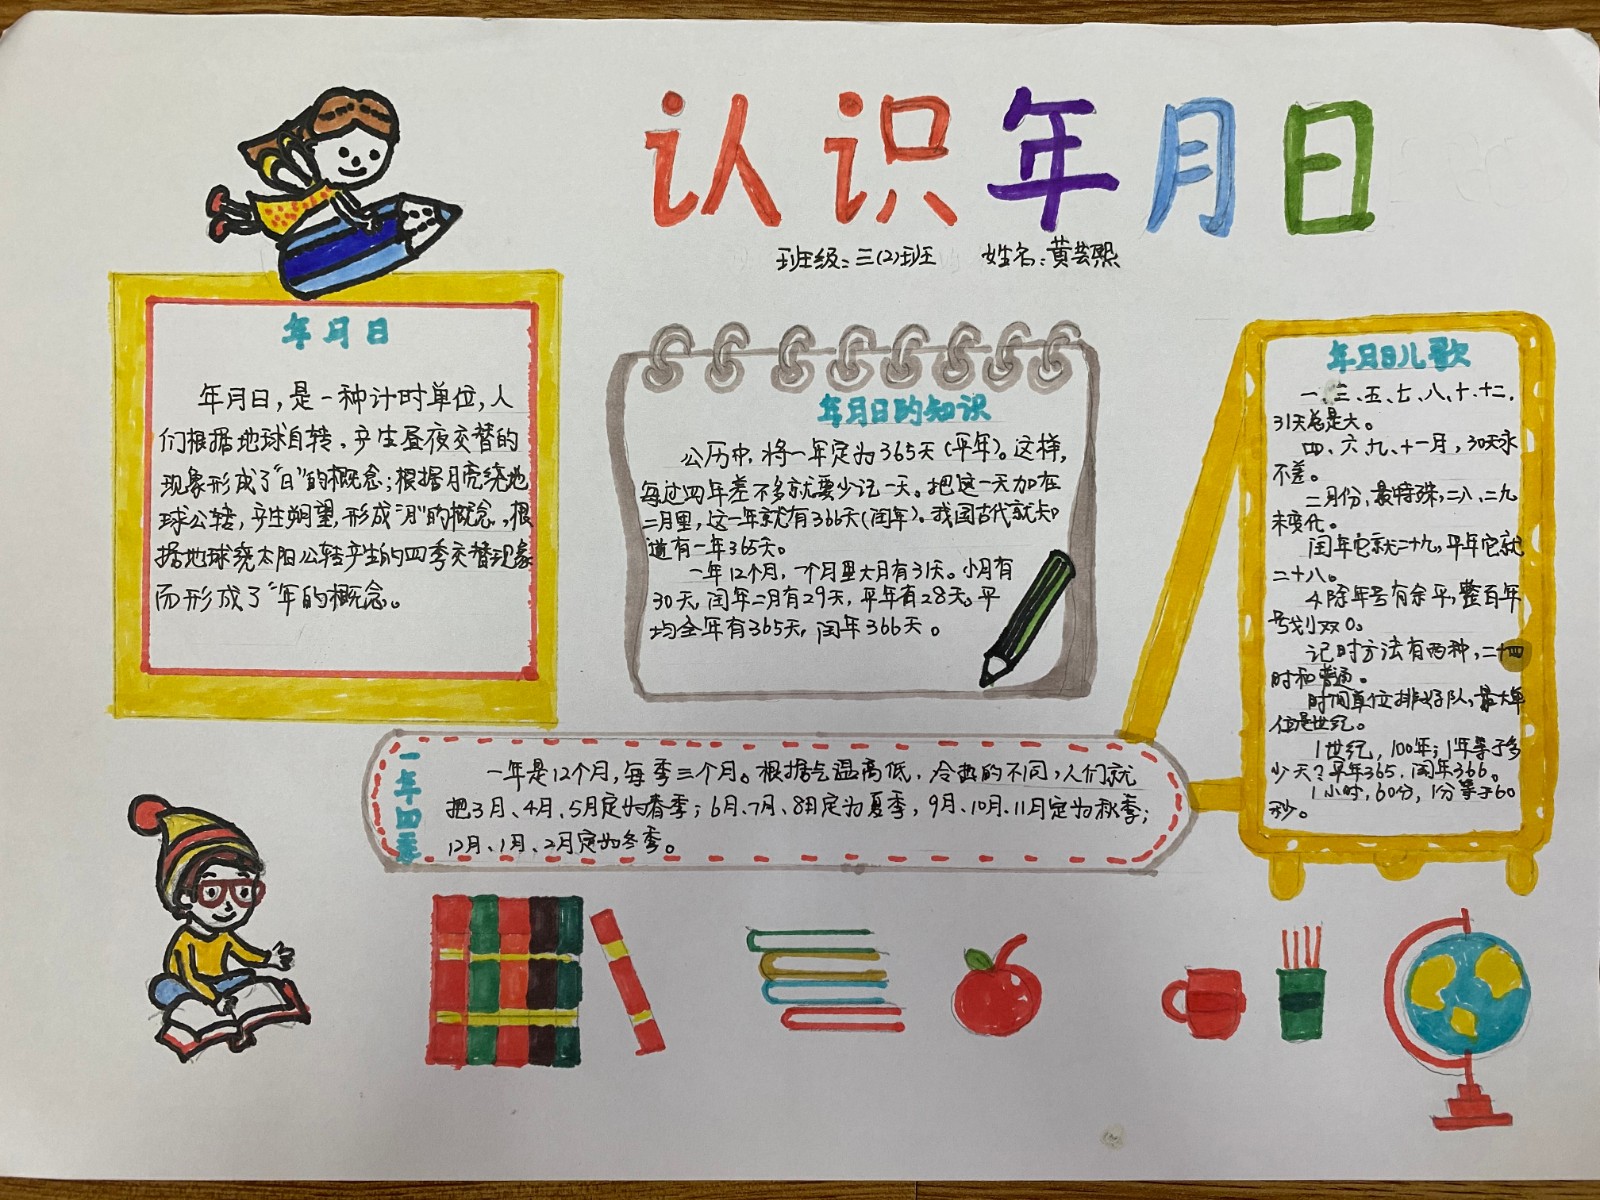 认识年月日
班级：三(2)班 姓名：黄芸熙
年月日
年月日，是一种计时单位，人
们根据地球自转，产生昼夜交替的
现象形成了“日”的概念；根据月亮绕地
球公转，产生朔望，形成“月”的概念。根
据地球绕太阳公转产生的四季交替现象
而形成了“年的概念。
年月日的知识
公历中，将一年定为365天(平年)。这样，
每过四年差不多就要少记一天。把这一天加在
二月里，这一年就有366天(闰年)。我国古代就知
道有一年365天。
一年12个月，一个月里大月有31天。小月有
30天，闰年二月有29天，平年有28天。平
均全年有365天，闰年366天。
年月日儿歌
一、三、五、七、八、十、十二，
31天总是大。
四、六、九、十一月，30天永
不差。
二月份，最特殊，二八、二九
未变化。
闰年它就二十九，平年它就
二十八。
4除年号有余平，整百年
号划双0。
记时方法有两种，二十四
时和普通。
时间单位排好队，最大单
位是世纪。
1世纪，100年；1年等于多
少天？平年365，闰年366。
1小时，60分，1分等于60
秒。
一年四季
一年是12个月，每季三个月。根据气温高低，冷热的不同，人们就
把3月、4月、5月定为春季；6月、7月、8月定为夏季，9月、10月、11月定为秋季；
12月、1月、2月定为冬季。